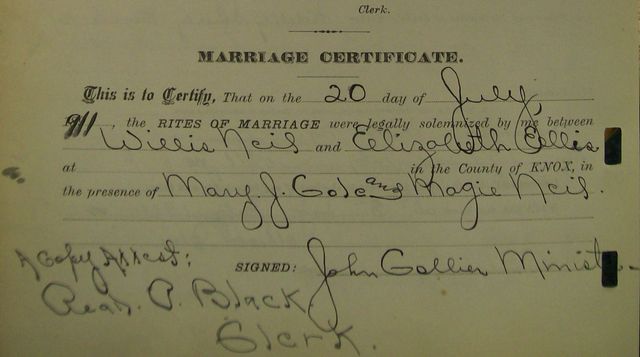 Clerk.
MARRIAGE CERTIFICATE.
This is to Certify, That on the 20 day of July,
1911, the RITES OF MARRIAGE were legally solemnized by me between
Willis Neil and Ellizabeth Ellis
at in the County of KNOX, in
the presence of Mary. J. Cole and Magie Neil.
A Copy Attest: SIGNED: John Collier Minister
P. Black
Clerk.